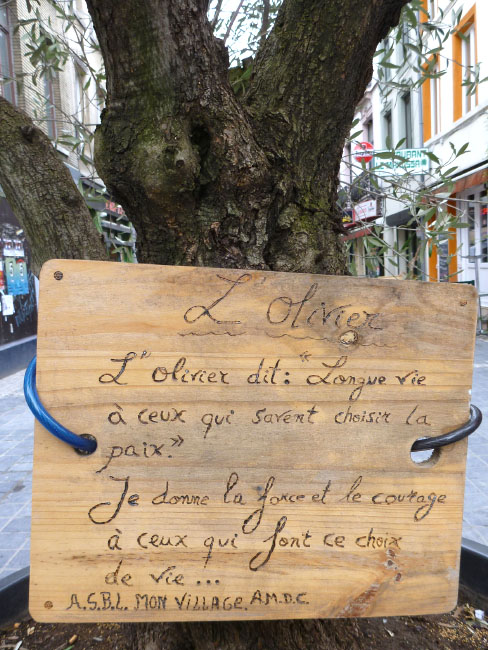 L'Olivier
L'olivier dit: "Longue vie
à ceux qui savent choisir la
paix."
Je donne la force et le courage
à ceux qui font ce choix
de vie...
A.S.B.L. MON VILLAGE. A.M.D.C.